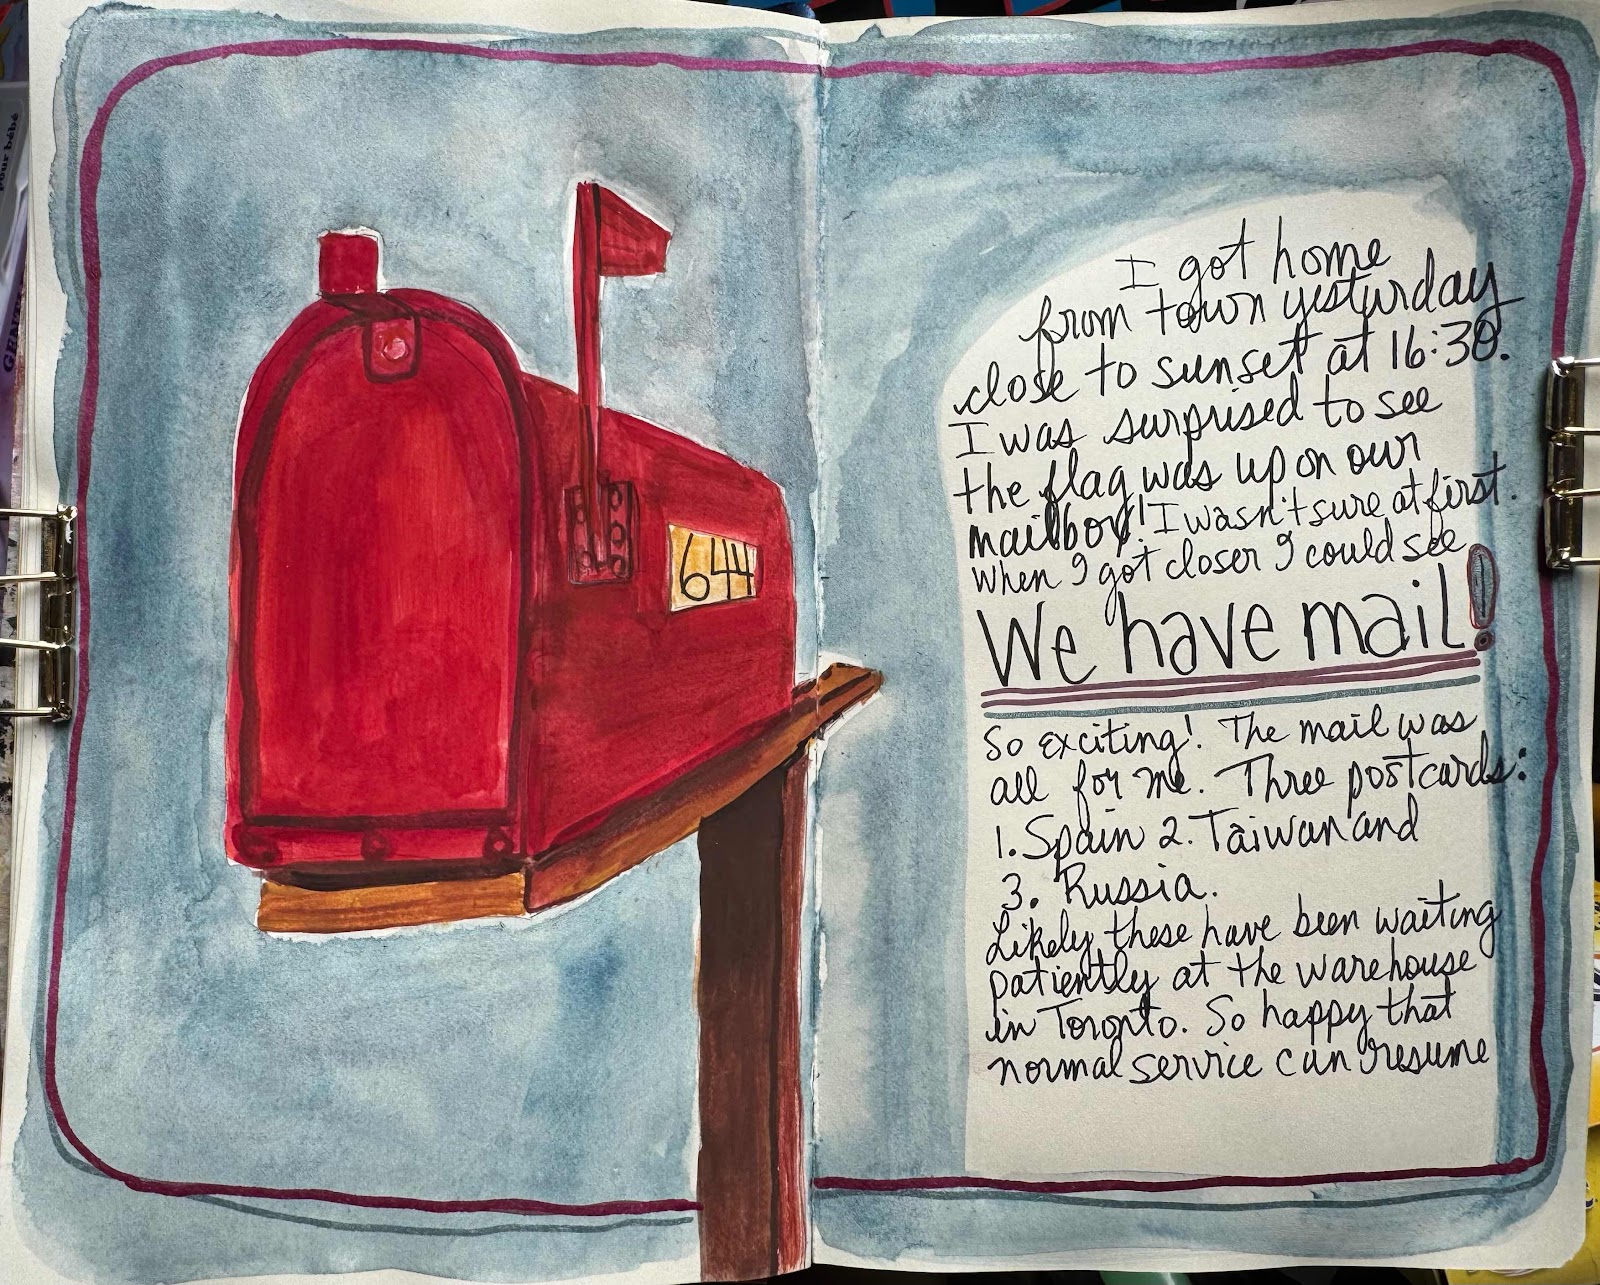 Pour bébé
644
I got home
from town yesturday
close to sunset at 16:30.
I was surprised to see
the flag was up on our
mailbox! I wasn't sure at first.
When I got closer I could see
We have mail!
So exciting! The mail was
all for me. Three postcards:
1. Spain 2. Taiwan and
3. Russia.
Likely these have been waiting
patiently at the warehouse
in Toronto. So happy that
normal service can resume